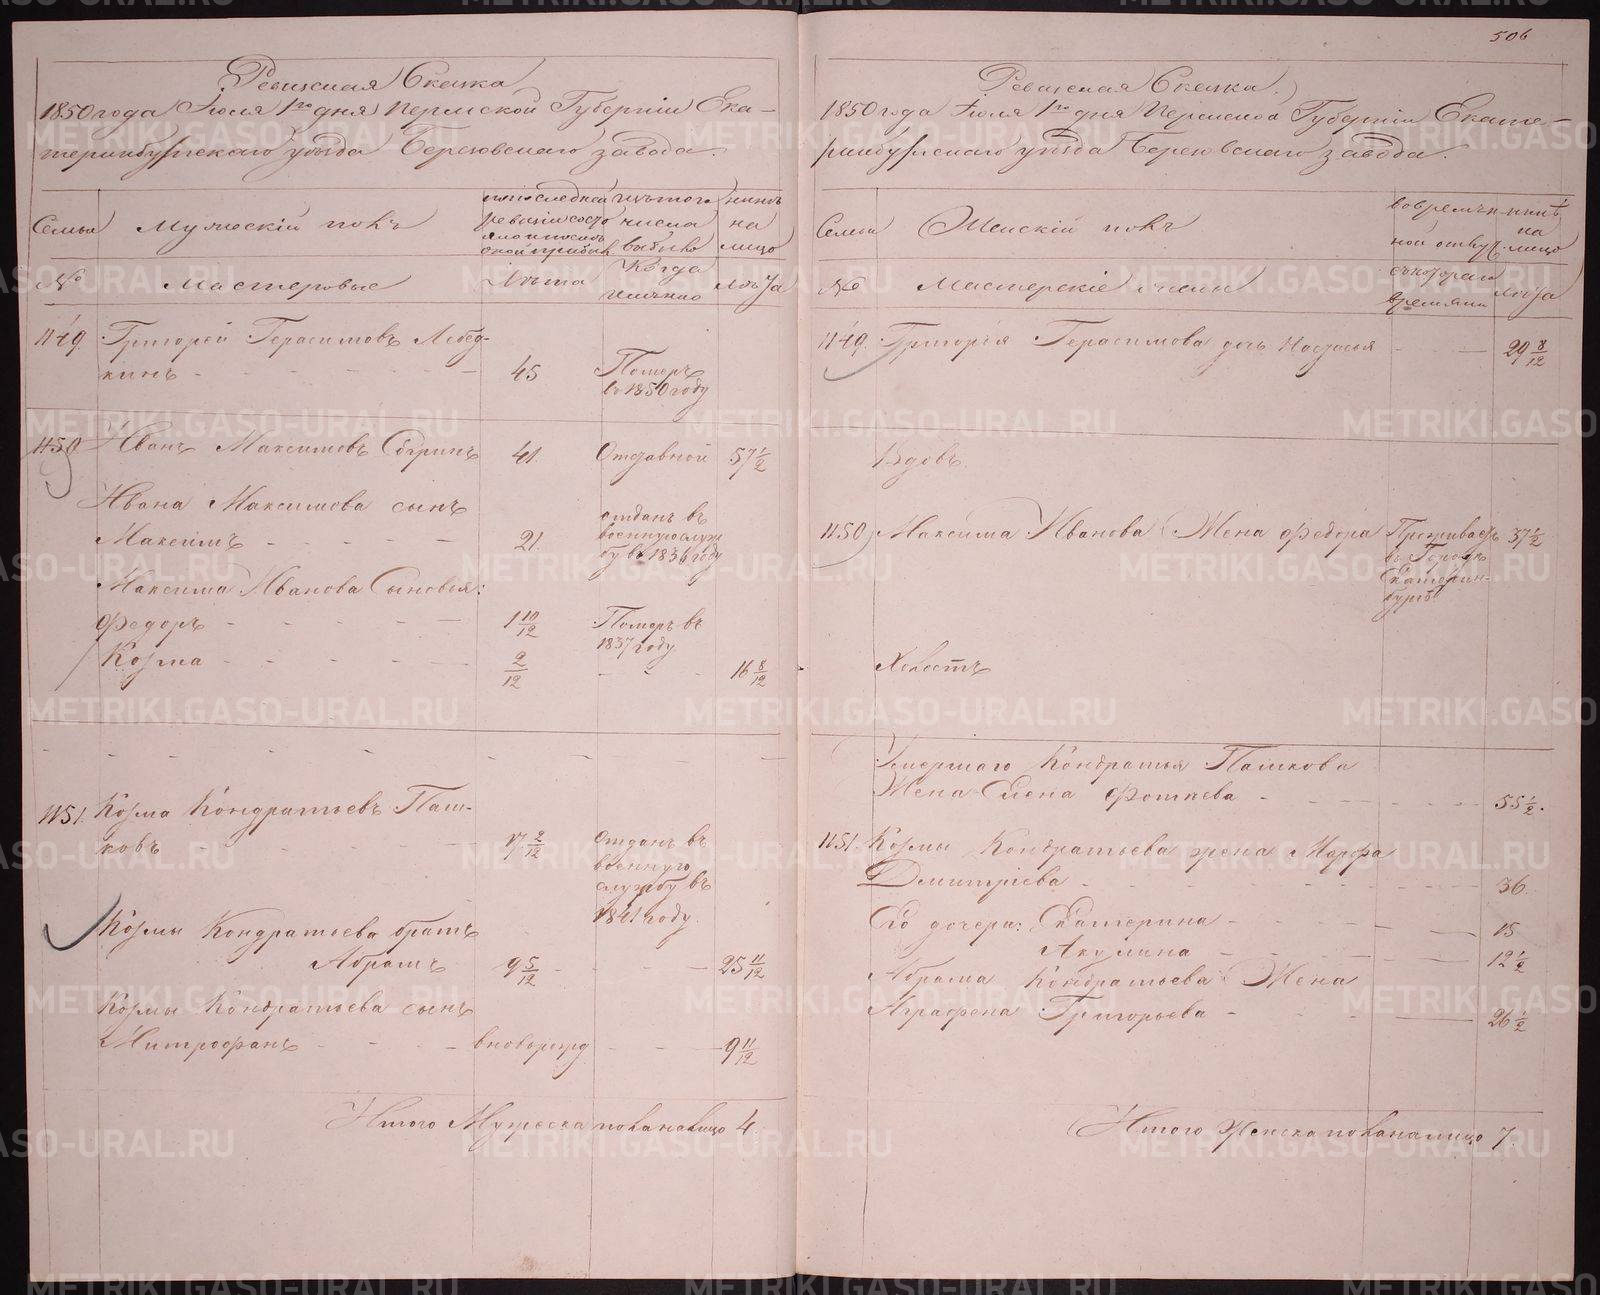 Ревизская Сказка
1850 года Июля 1го дня Пермской Губернии Ека-
теринбургскаго уезда Березовскаго завода.
Семьи
Мужескій полъ
по последней
ревизіи состо
яло и после
оной прибыло
изъ того
числа
выбыло
ныне
на
лицо
№
Мастеровые
Лѣта
Когда
именно
Лѣта
1149.
Григорей Герасимовъ Лебед-
кинъ
45
Померъ
въ 1850 году
1150
Иванъ Максимовъ
41.
Отставной
57 1/2
Ивана Максимова сынъ
Максимъ
21.
отданъ въ
военную служ
бу въ 1836 году
Максима Иванова Сыновья:
Федоръ
1 10/12
Померъ въ
1837 году
Козма
2/12
16 8/12
1151.
Козма Кондратьевъ Паш-
ковъ
17 2/12
Отданъ въ
военную
службу въ
1841 году.
Козмы Кондратьева братъ
Абрамъ
9 5/12
25 11/12
Козмы Кондратьева сынъ
Митрофанъ
вноворожд
9 11/12
Итого Мужеска пола налицо 4.
506
Ревизская Сказка.
1850 года Июля 1го дня Пермской Губерніи Екате-
ринбургскаго уезда Березовскаго завода.
Семьи
Женскій полъ
во времян
ной отлуч.
ныне
на
лицо
№
Мастерскіе жены
съ котораго
времяни
Лѣта
1149.
Григорія Герасимова дочь Настасья
29 8/12
Вдовъ
1150
Максима Иванова Жена Федора
Проживаетъ
въ Городе
Екатерин-
бурге
37 1/2
Холостъ
Умершаго Кондратья Пашкова
Жена Елена Фотиева
55 1/2.
1151.
Козмы Кондратьева жена Марфа
Дмитріева
36.
Его дочери: Екатерина
15
Акулина
12 1/2
Абрама Кондратьева Жена
Аграфена Григорьева
26 1/2
Итого Женска пола налицо 7.
METRIKI.GASO-URAL.RU